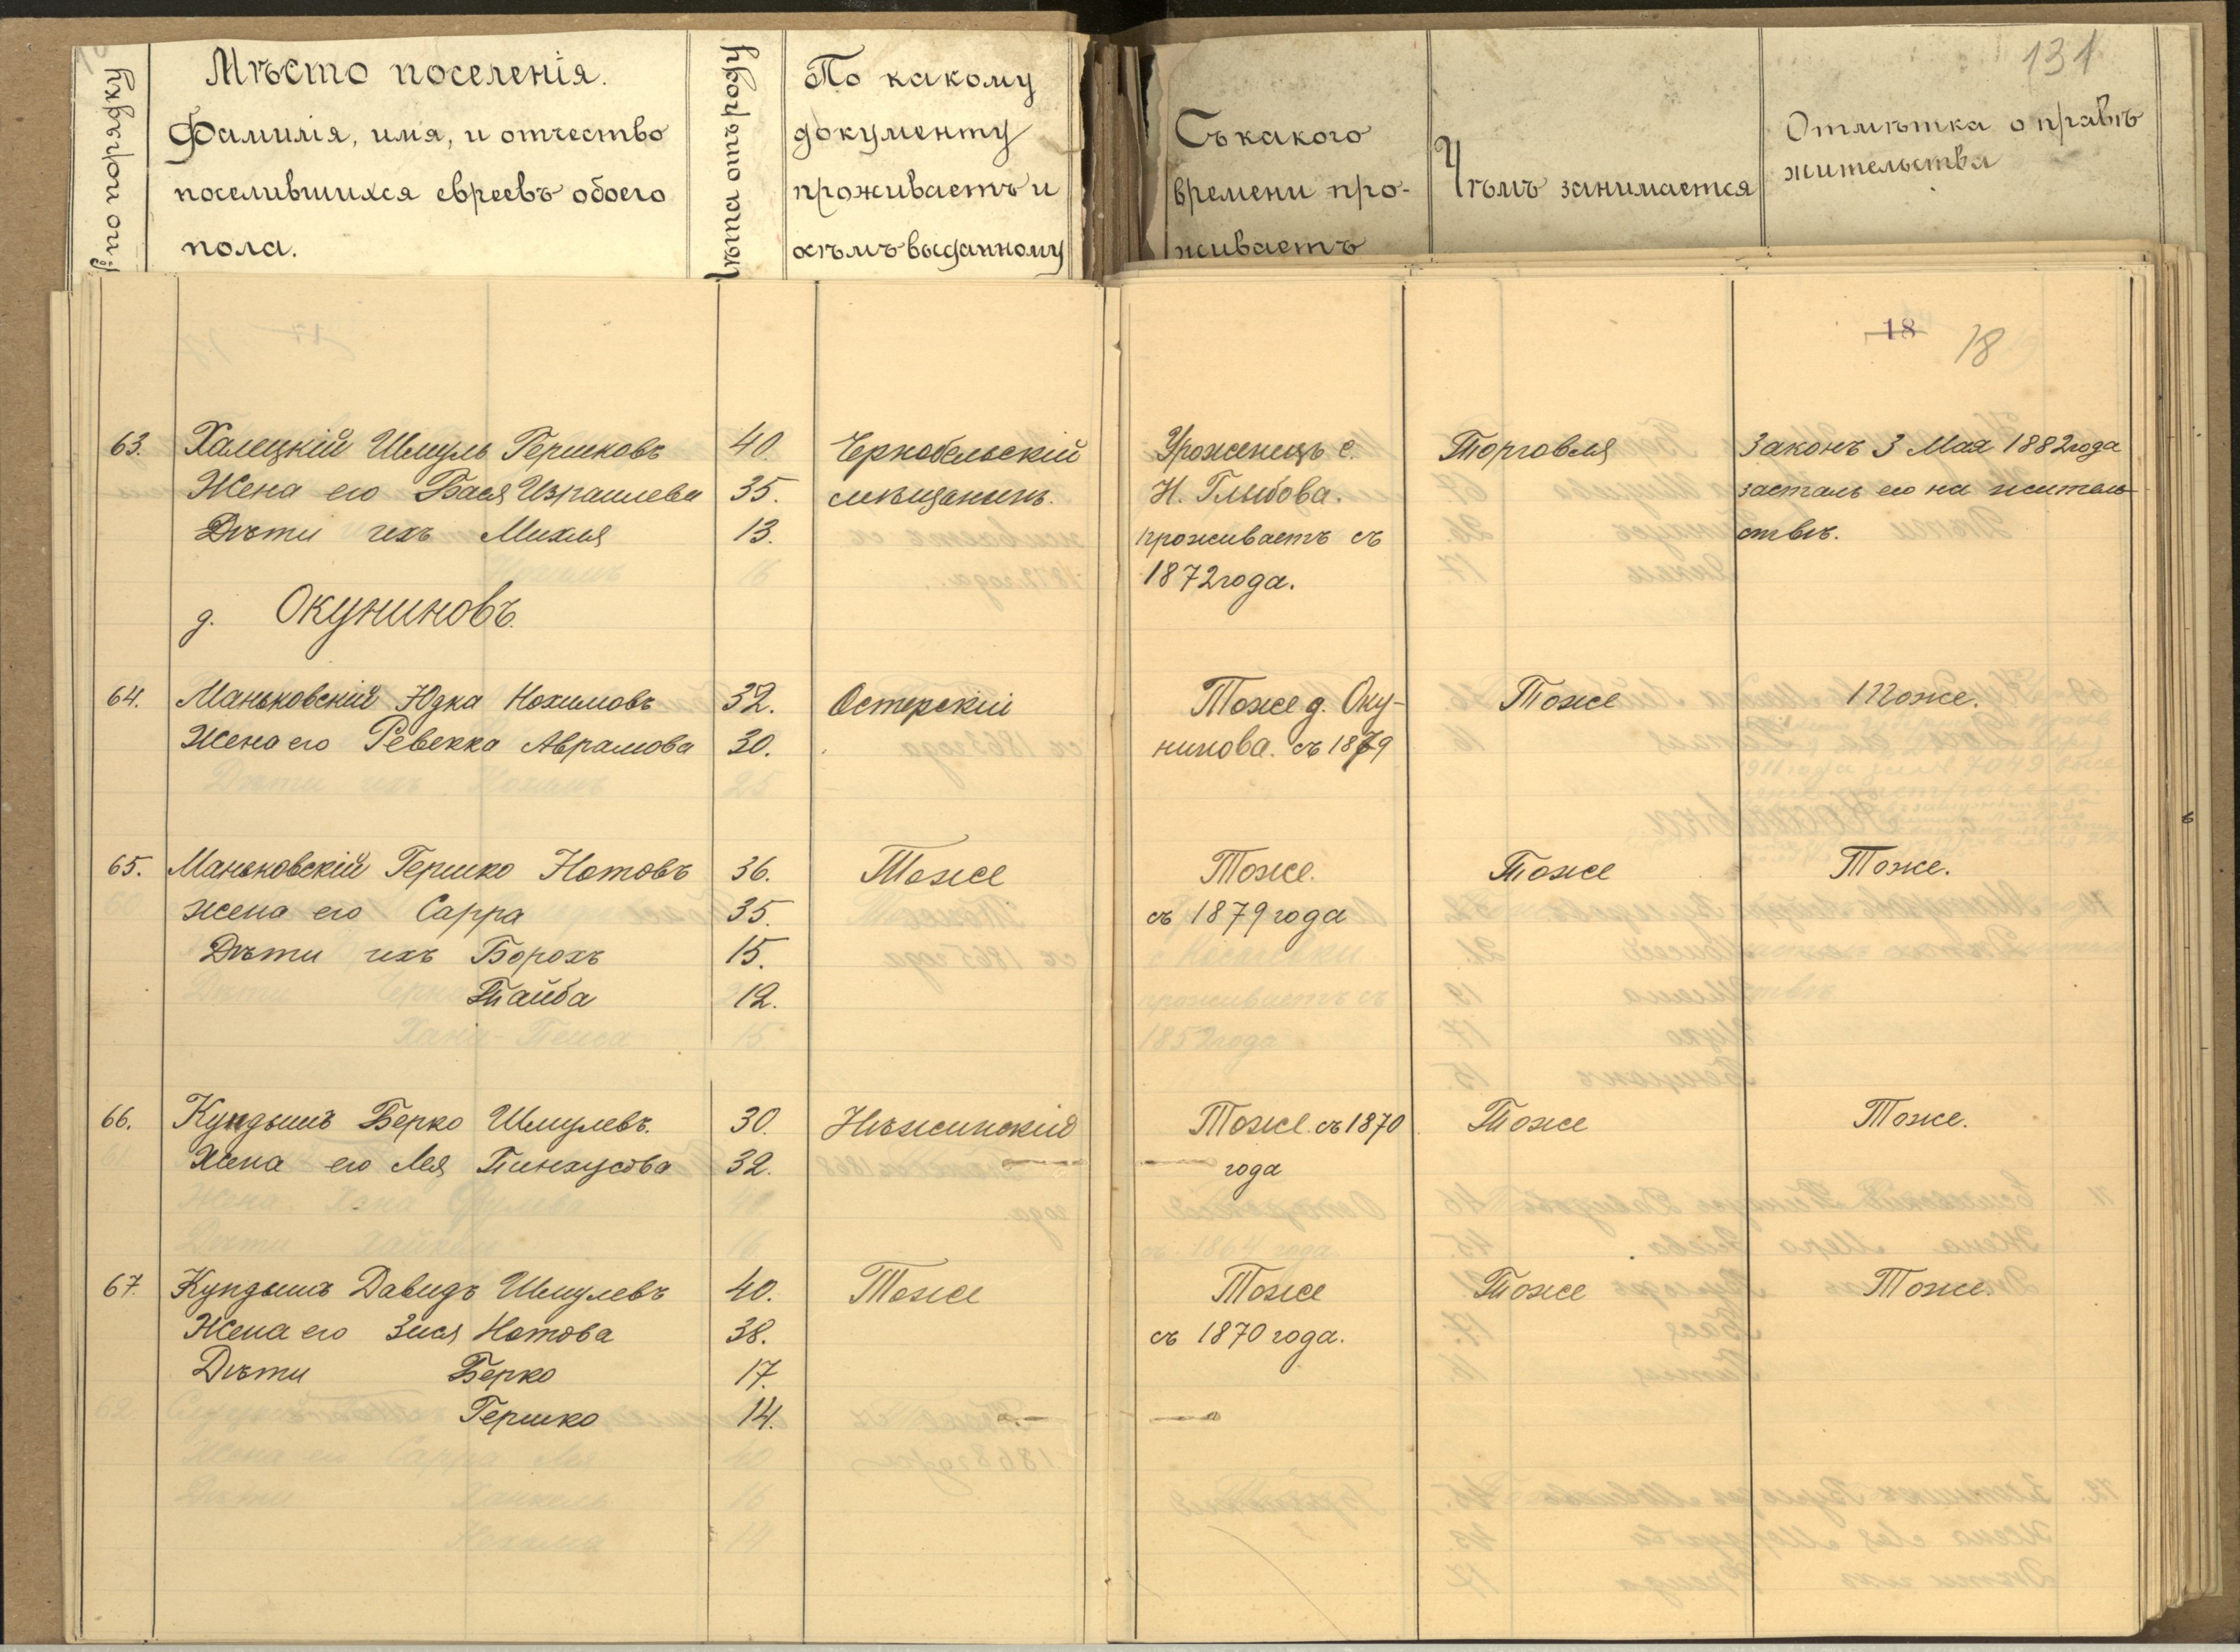 № по порядку
Мѣсто поселенія.
Фамилія, имя, и отчество
поселившихся евреевъ обоего
пола.
Лѣта отъ роду
По какому
документу
проживаетъ и
кѣмъ выданному
Съ какого
времени про-
живаетъ
Чѣмъ занимается
131
Отмѣтка о правѣ
жительства
18 18
63. Халецкій Шмуль Гершковъ 40 Чернобельскій Уроженецъ с. Торговля Законъ 3 Мая 1882 года
Жена его Бася Израилева 35. мѣщанинъ. Н. Глыбова. засталъ его на житель-
Дѣти ихъ Михля 13. проживаетъ съ ствѣ.
1872 года.
д. Окуниновъ.
64. Маньковскій Юдка Нохимовъ 32. Остерскій Тоже д. Оку- Тоже Тоже.
Жена его Ревекка Аврамова 30. нинова. съ 1879
65. Маньковскій Гершко Нотовъ 36. Тоже Тоже. Тоже Тоже.
жена его Сарра 35. съ 1879 года
Дѣти ихъ Борохъ 15.
Тайба 12.
66. Кундышъ Берко Шмулевъ. 30. Нѣжинскій Тоже. съ 1870 Тоже Тоже.
Жена его Лея Пинхусова 32. года
67. Кундышъ Давидъ Шмулевъ 40. Тоже Тоже Тоже Тоже.
Жена его Зися Нотова 38. съ 1870 года.
Дѣти Берко 17.
Гершко 14.